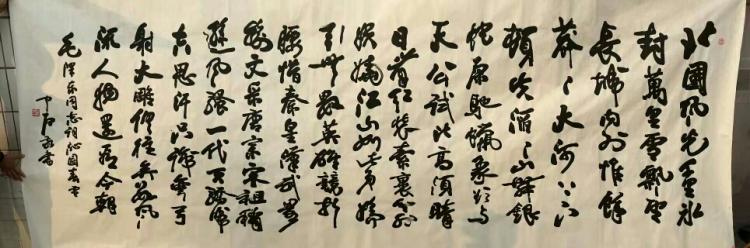 北國風光千里冰
封萬里雪飄望
長城内外惟餘
莽々大河上下
頓失滔々山舞銀
蛇原馳蠟象欲與
天公試比高須晴
日看紅裝素裹分外
妖嬈江山如此多嬌
引無數英雄競折
腰惜秦皇漢武略
輸文采唐宗宋祖稍
遜風騷一代天驕成
吉思汗只識彎弓
射大雕俱往矣數風
流人物還看今朝
毛澤東同志詞沁園春雪
書